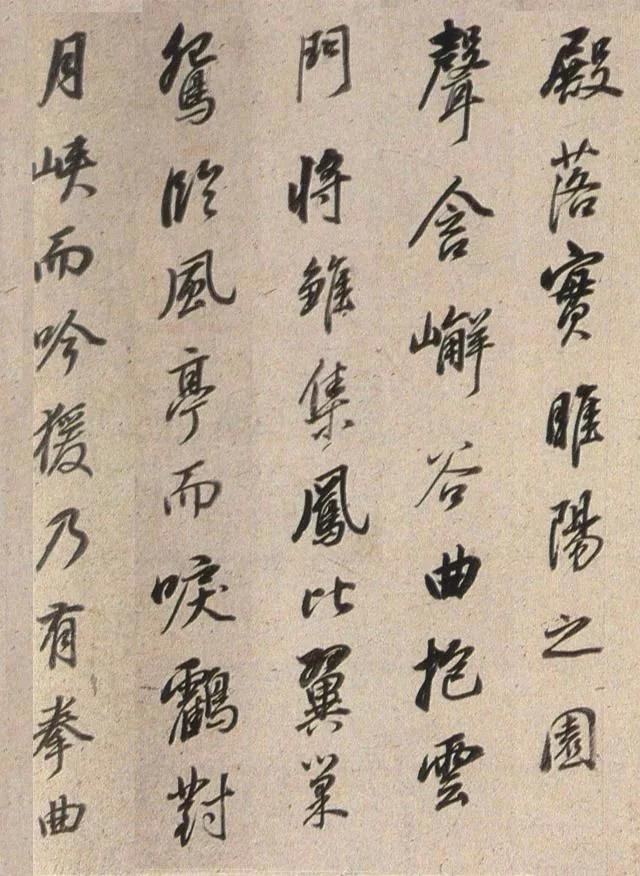 殿落實睢陽之園
聲含嶰谷曲抱雲
門將雏集鳳比翼巢
鴛臨風亭而唳鸖對
月峽而吟猨乃有拳曲